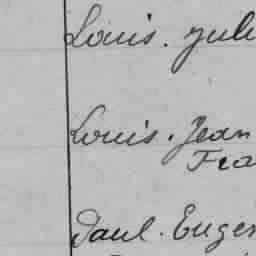 Louis. Jule
Louis. Jean
Fra
Paul. Eugen